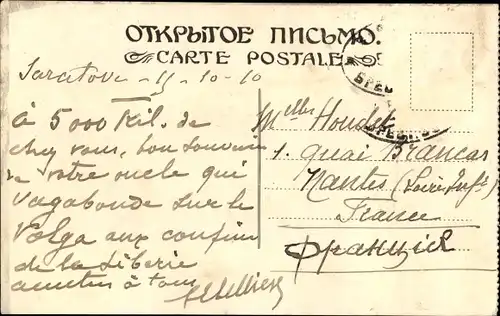 ОТКРЫТОЕ ПИСЬМО.
CARTE POSTALE
Saratow - 15-10-10
à 5000 Kil. de
chez vous, bon souvenir
de votre oncle qui
vagabonde sur le
Volga aux confins
de la Siberie
amitiés à tous
Melles Houdet
1. quai Brancas
Nantes (Loire Infre)
France
Франція